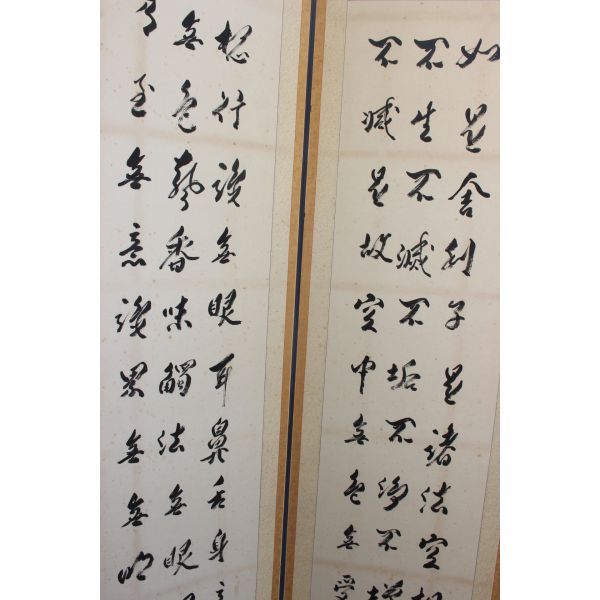 如是舍利子是諸法空相
不生不滅不垢不淨不增
不減是故空中無色無受
想行識無眼耳鼻舌身意
無色聲香味觸法無眼
至無意識界無無明